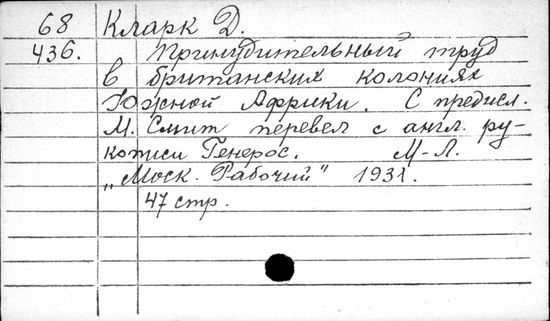 68 Кларк Д.
436. Принудительный труд
в британских колониях
Южной Африки. С предисл.
М. Смит перевел с англ. ру-
кописи Генерос. М-Л.
„Моск. Рабочий" 1931.
47 стр.